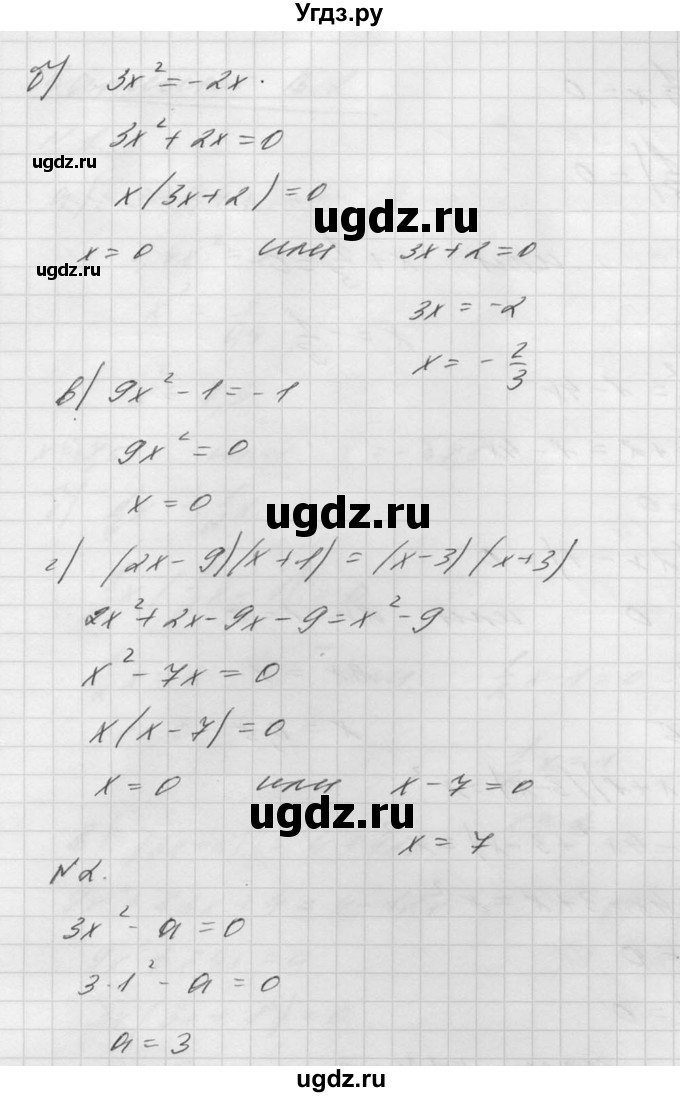 Угдз.ру
б) 3x² = -2x.
3x² + 2x = 0
ugdz.ru
x(3x + 2) = 0
ugdz.ru
x = 0 или 3x + 2 = 0
ugdz.ru
3x = -2
x = -2/3
в) 9x² - 1 = -1
9x² = 0
x = 0
ugdz.ru
г) (2x - 9)(x + 1) = (x - 3)(x + 3)
2x² + 2x - 9x - 9 = x² - 9
x² - 7x = 0
x(x - 7) = 0
x = 0 или x - 7 = 0
ugdz.ru
x = 7
N 2.
3x² - a = 0
3·1² - a = 0
a = 3
ugdz.ru